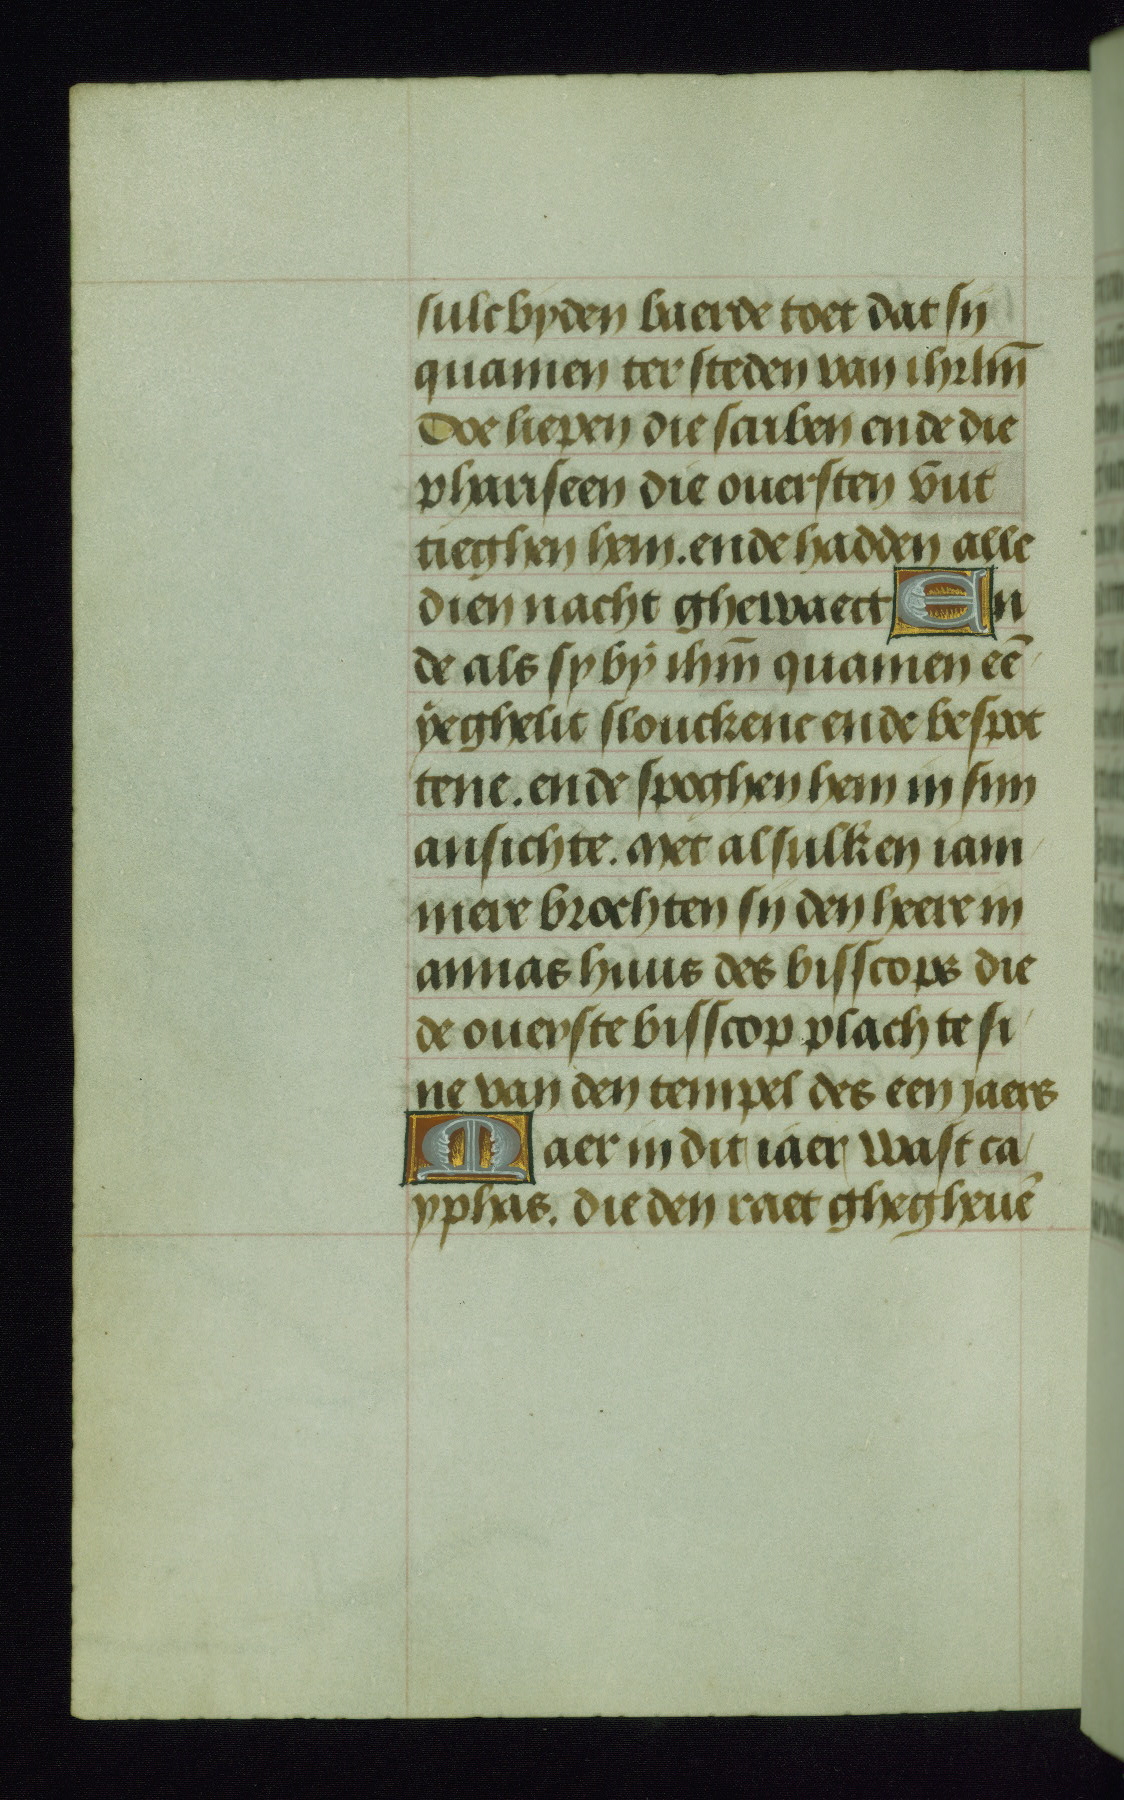 sulc byden baerde toet dat sij
quamen ter steden van ihrlm̄
Doe liepen die scriben ende die
phariseen die ouersten vut
tieghen hem. ende hadden alle
dien nacht ghewaect En
de als sy bÿ ihm̄ quamen eē
ÿeghelic slouckene ende bespot
tene. ende spoghen hem in sijn
ansichte. Met alsulken iam
mere brochten sij den heere in
annas huus des bisscops die
de ouerste bisscop plach te si
ne van den tempel des een jaers
Maer in dit iaer wast ca
yphas. die den raet ghegheuē